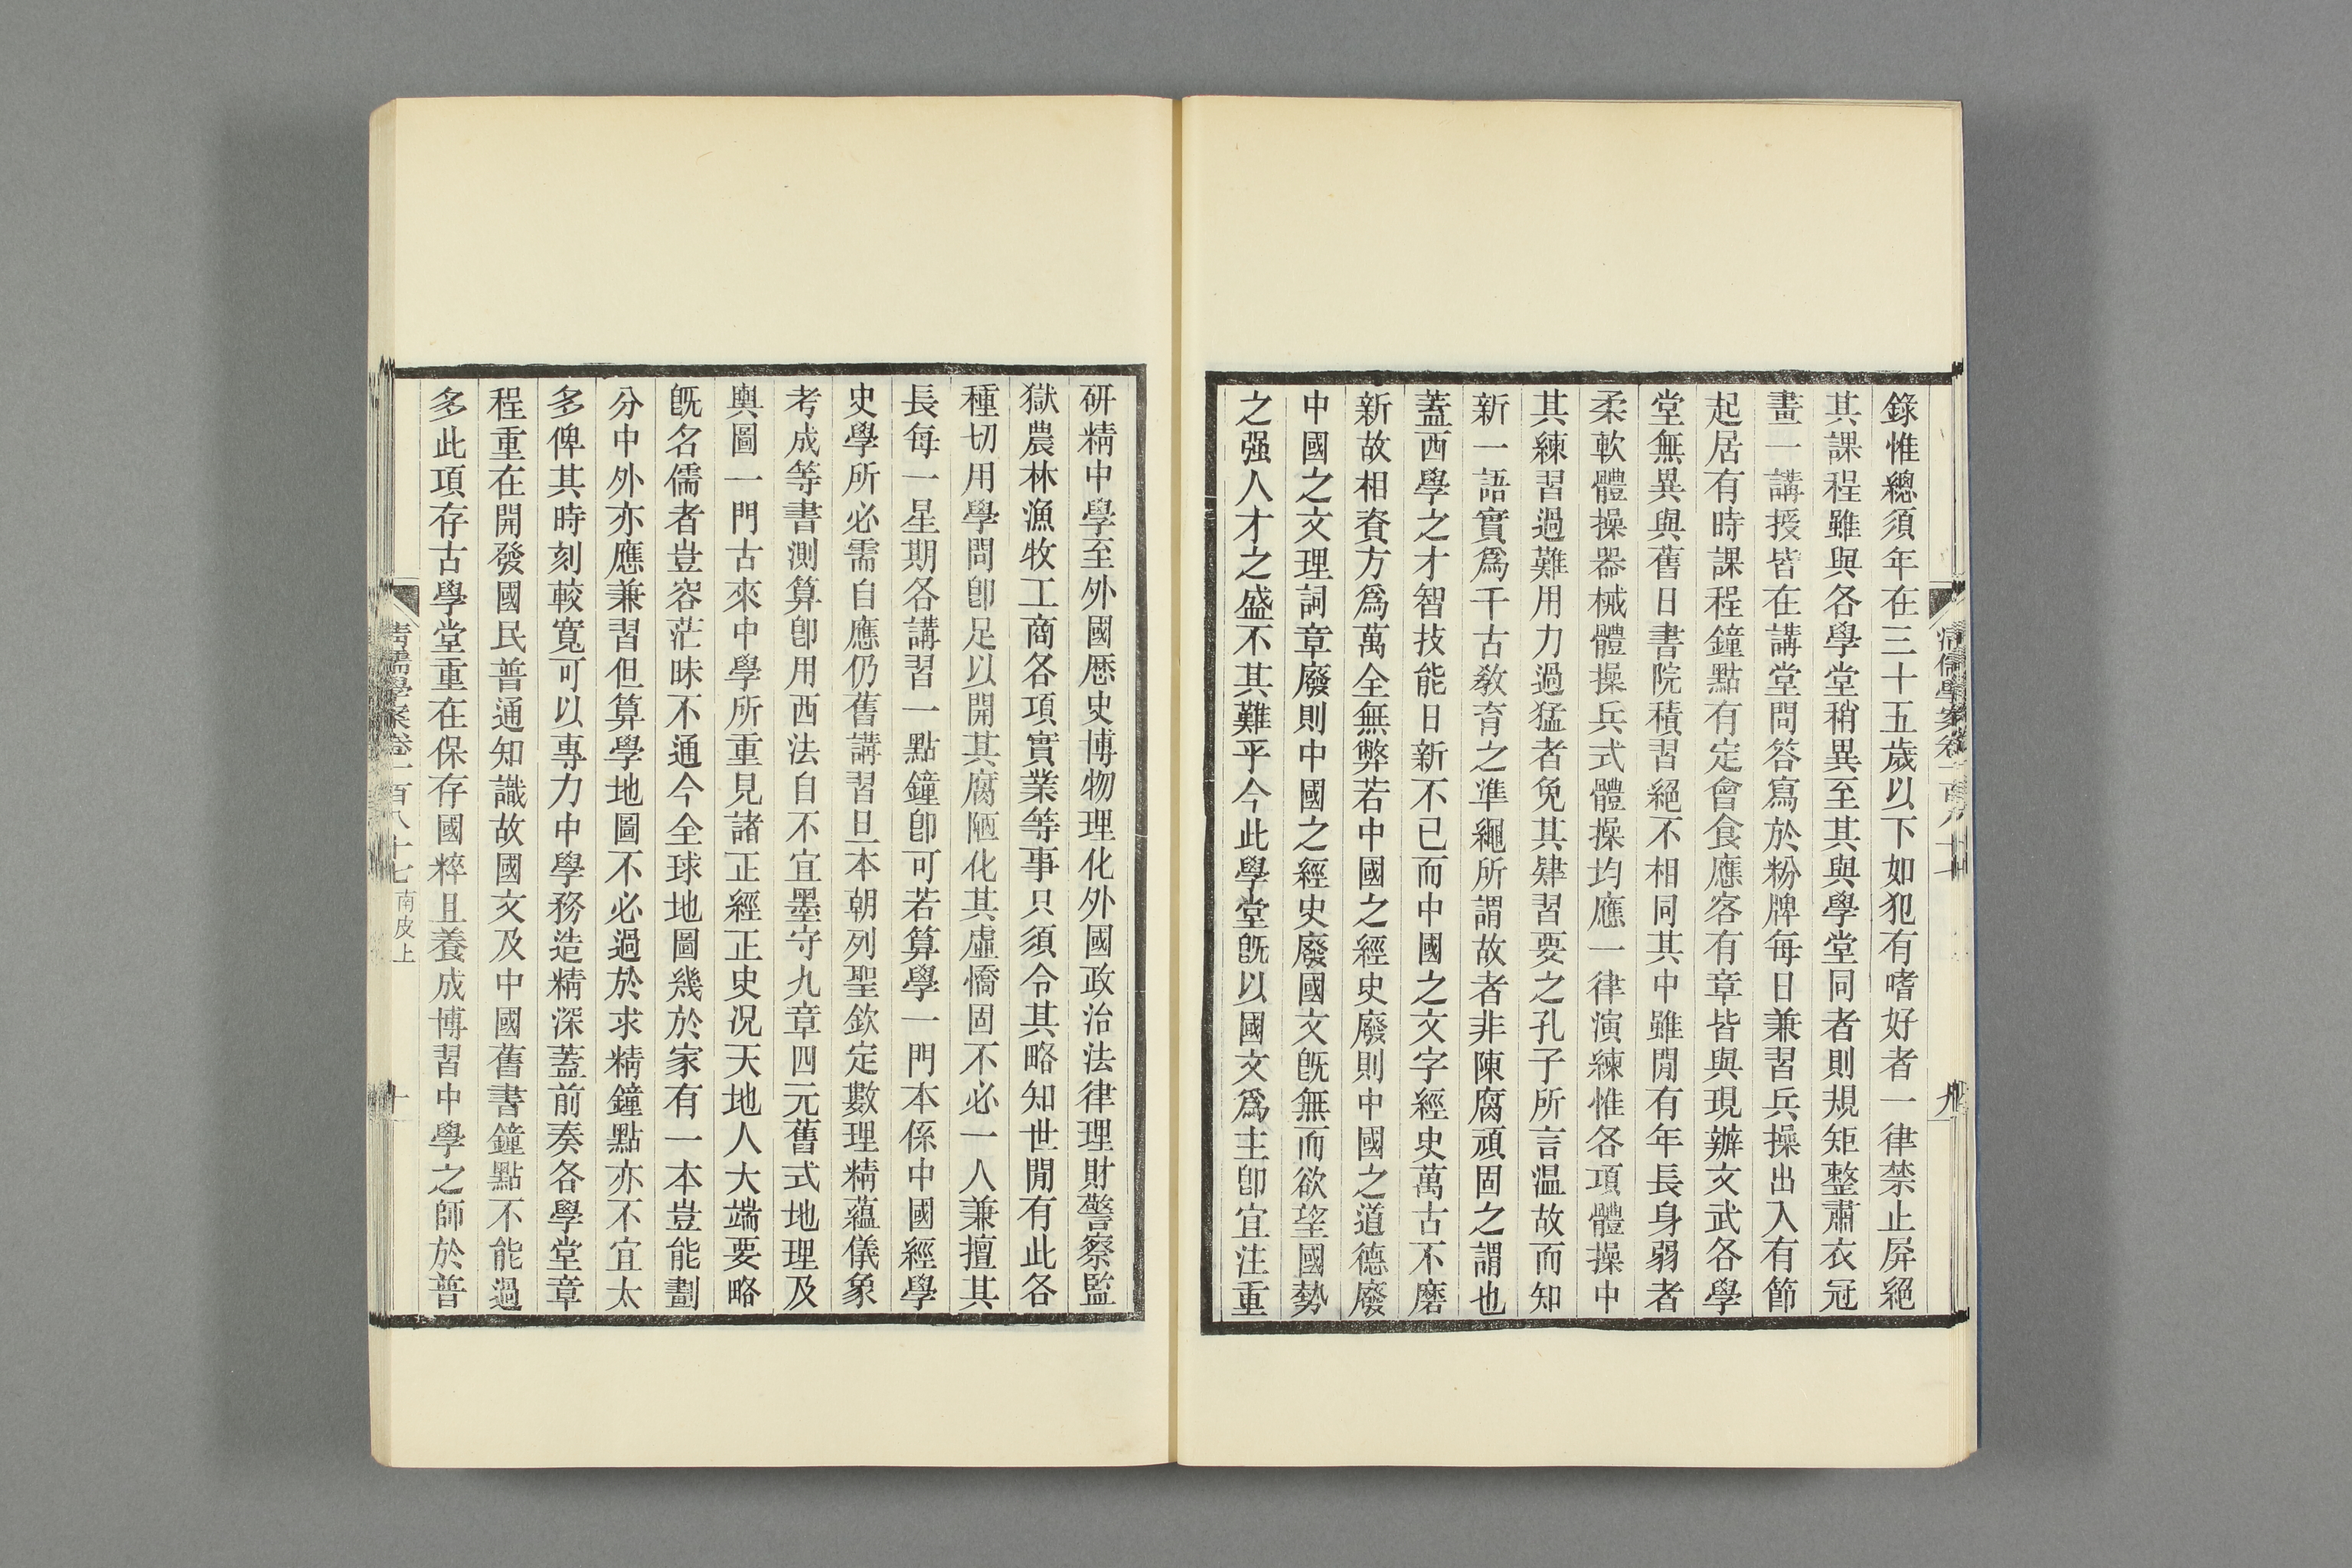 錄惟總須年在三十五歲以下如犯有嗜好者一律禁止屏絕
其課程雖與各學堂稍異至其與學堂同者則規矩整肅衣冠
畫一講授皆在講堂問答寫於粉牌每日兼習兵操出入有節
起居有時課程鐘點有定會食應客有章皆與現辦文武各學
堂無異與舊日書院積習絕不相同其中雖閒有年長身弱者
柔軟體操器械體操兵式體操均應一律演練惟各項體操中
其練習過難用力過猛者免其肄習要之孔子所言温故而知
新一語實爲千古敎育之準繩所謂故者非陳腐頑固之謂也
蓋西學之才智技能日新不已而中國之文字經史萬古不磨
新故相資方爲萬全無弊若中國之經史廢則中國之道德廢
中國之文理詞章廢則中國之經史廢國文旣無而欲望國勢
之强人才之盛不其難乎今此學堂旣以國文爲主卽宜注重
研精中學至外國歷史博物理化外國政治法律理財警察監
獄農林漁牧工商各項實業等事只須令其略知世閒有此各
種切用學問卽足以開其腐陋化其虛憍固不必一人兼擅其
長每一星期各講習一點鐘卽可若算學一門本係中國經學
史學所必需自應仍舊講習且本朝列聖欽定數理精蘊儀象
考成等書測算卽用西法自不宜墨守九章四元舊式地理及
輿圖一門古來中學所重見諸正經正史況天地人大端要略
旣名儒者豈容茫昧不通今全球地圖幾於家有一本豈能劃
分中外亦應兼習但算學地圖不必過於求精鐘點亦不宜太
多俾其時刻較寬可以專力中學務造精深蓋前奏各學堂章
程重在開發國民普通知識故國文及中國舊書鐘點不能過
多此項存古學堂重在保存國粹且養成博習中學之師於普
清儒學案卷一百八十七 南皮上
十